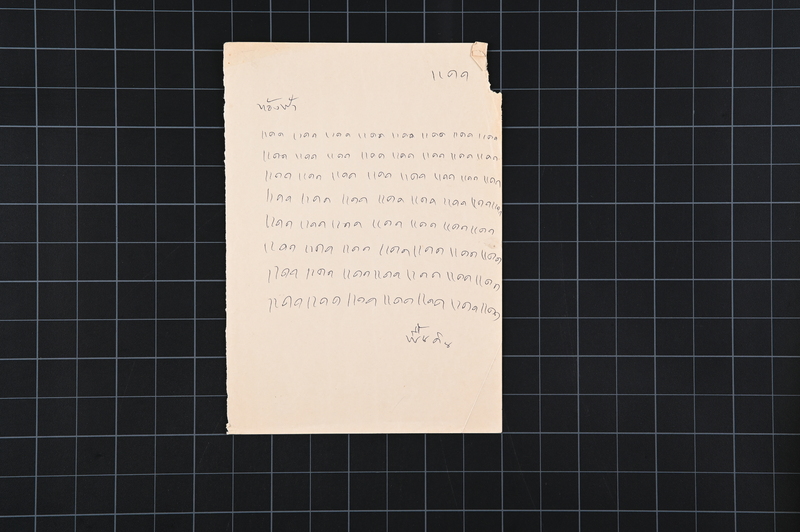 แดด
ท้องฟ้า
แดด แดด แดด แดด แดด แดด แดด แดด
แดด แดด แดด แดด แดด แดด แดด แดด
แดด แดด แดด แดด แดด แดด แดด แดด
แดด แดด แดด แดด แดด แดด แดด แดด
แดด แดด แดด แดด แดด แดด แดด
แดด แดด แดด แดด แดด แดด แดด
แดด แดด แดด แดด แดด แดด แดด
แดด แดด แดด แดด แดด แดด แดด
พื้นดิน